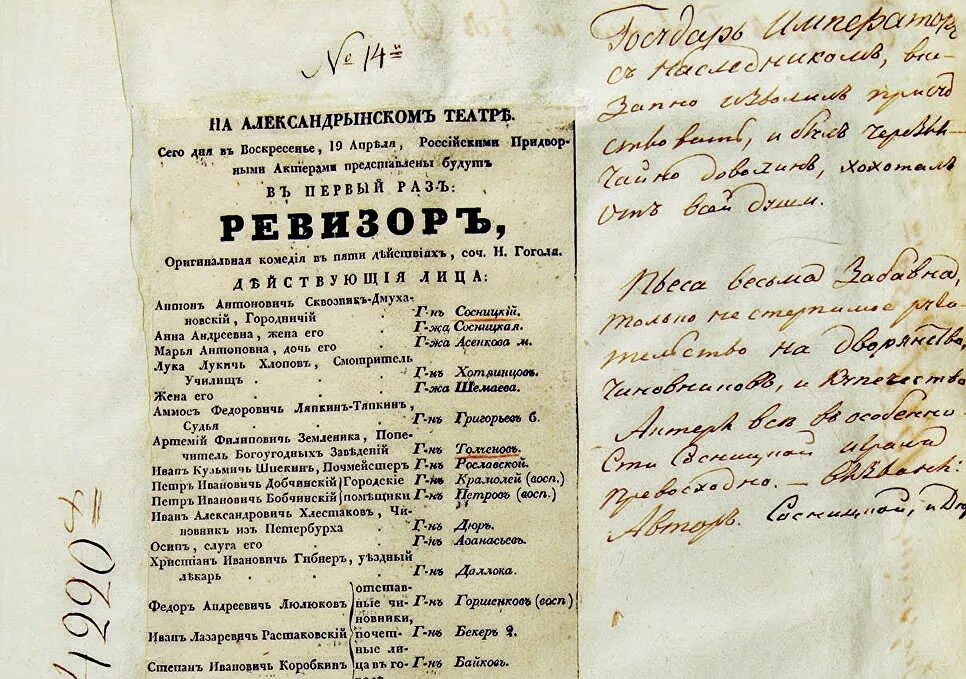 № 14й
НА АЛЕКСАНДРЫНСКОМЪ ТЕАТРѢ.
Сего дня въ Воскресенье, 19 Апрѣля, Россійскими Придвор-
ными Актерами представлены будутъ
ВЪ ПЕРВЫЙ РАЗЪ:
РЕВИЗОРЪ,
Оригинальная комедія въ пяти дѣйствіяхъ, соч. Н. Гоголя.
ДѢЙСТВУЮЩІЯ ЛИЦА:
Антонъ Антоновичь Сквозник-Дмуха-
новскій, Городничій . Г-нъ Сосницкій.
Анна Андреевна, жена его . Г-жа Сосницкая.
Марья Антоновна, дочь его . Г-жа Асенкова м.
Лука Лукичь Хлоповъ, Смотритель
Училищъ . . . . Г-нъ Хотяинцовъ.
Жена его . . . . Г-жа Шемаева.
Аммосъ Федоровичь Ляпкинъ-Тяпкинъ,
Судья . . . . Г-нъ Григорьевъ б.
Артемій Филиповичь Земленика, Попе-
читель Богоугодныхъ Заведеній Г-нъ Толченовъ.
Иванъ Кузьмичь Шпекинъ, Почмейстеръ Г-нъ Рославской.
Петръ Ивановичь Добчинскій) Городскіе Г-нъ Крамолей (восп.)
Петръ Ивановичь Бобчинскій) помѣщики Г-нъ Петровъ (восп.)
Иванъ Александровичь Хлестаковъ, Чи-
новникъ изъ Петербурха . Г-нъ Дюръ.
Осипъ, слуга его . . . Г-нъ Аѳанасьевъ.
Христіанъ Ивановичь Гибнеръ, уѣздный
лѣкарь . . . . Г-нъ Даллока.
Федоръ Андреевичь Люлюковъ отстав-
ные чи- Г-нъ Горшенковъ (восп)
новники,
Иванъ Лазаревичь Растаковскій почет- Г-нъ Бекеръ 2.
ные ли-
Степанъ Ивановичь Коробкинъ ца въ го- Г-нъ Байковъ.
4220
Государь Императоръ
съ Наслѣдникомъ, вне-
запно изволилъ присут
ствовать, и былъ чрезвы-
чайно доволенъ, хохоталъ
отъ всей души.
Пьеса весьма забавна,
только не стерпимое руга-
тельство на дворянство,
чиновниковъ, и купечество
Актеры всѣ въ особенно-
сти Сосницкой играли
превосходно. — вызваны:
Авторъ. Сосницкой, и Дюр